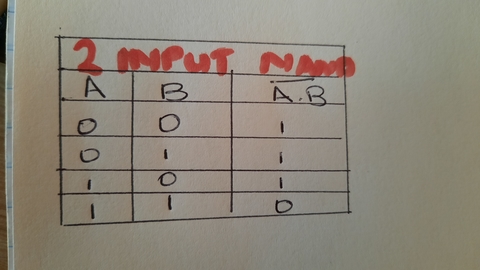 2 INPUT NAND
A B A.B
0 0 1
0 1 1
1 0 1
1 1 0